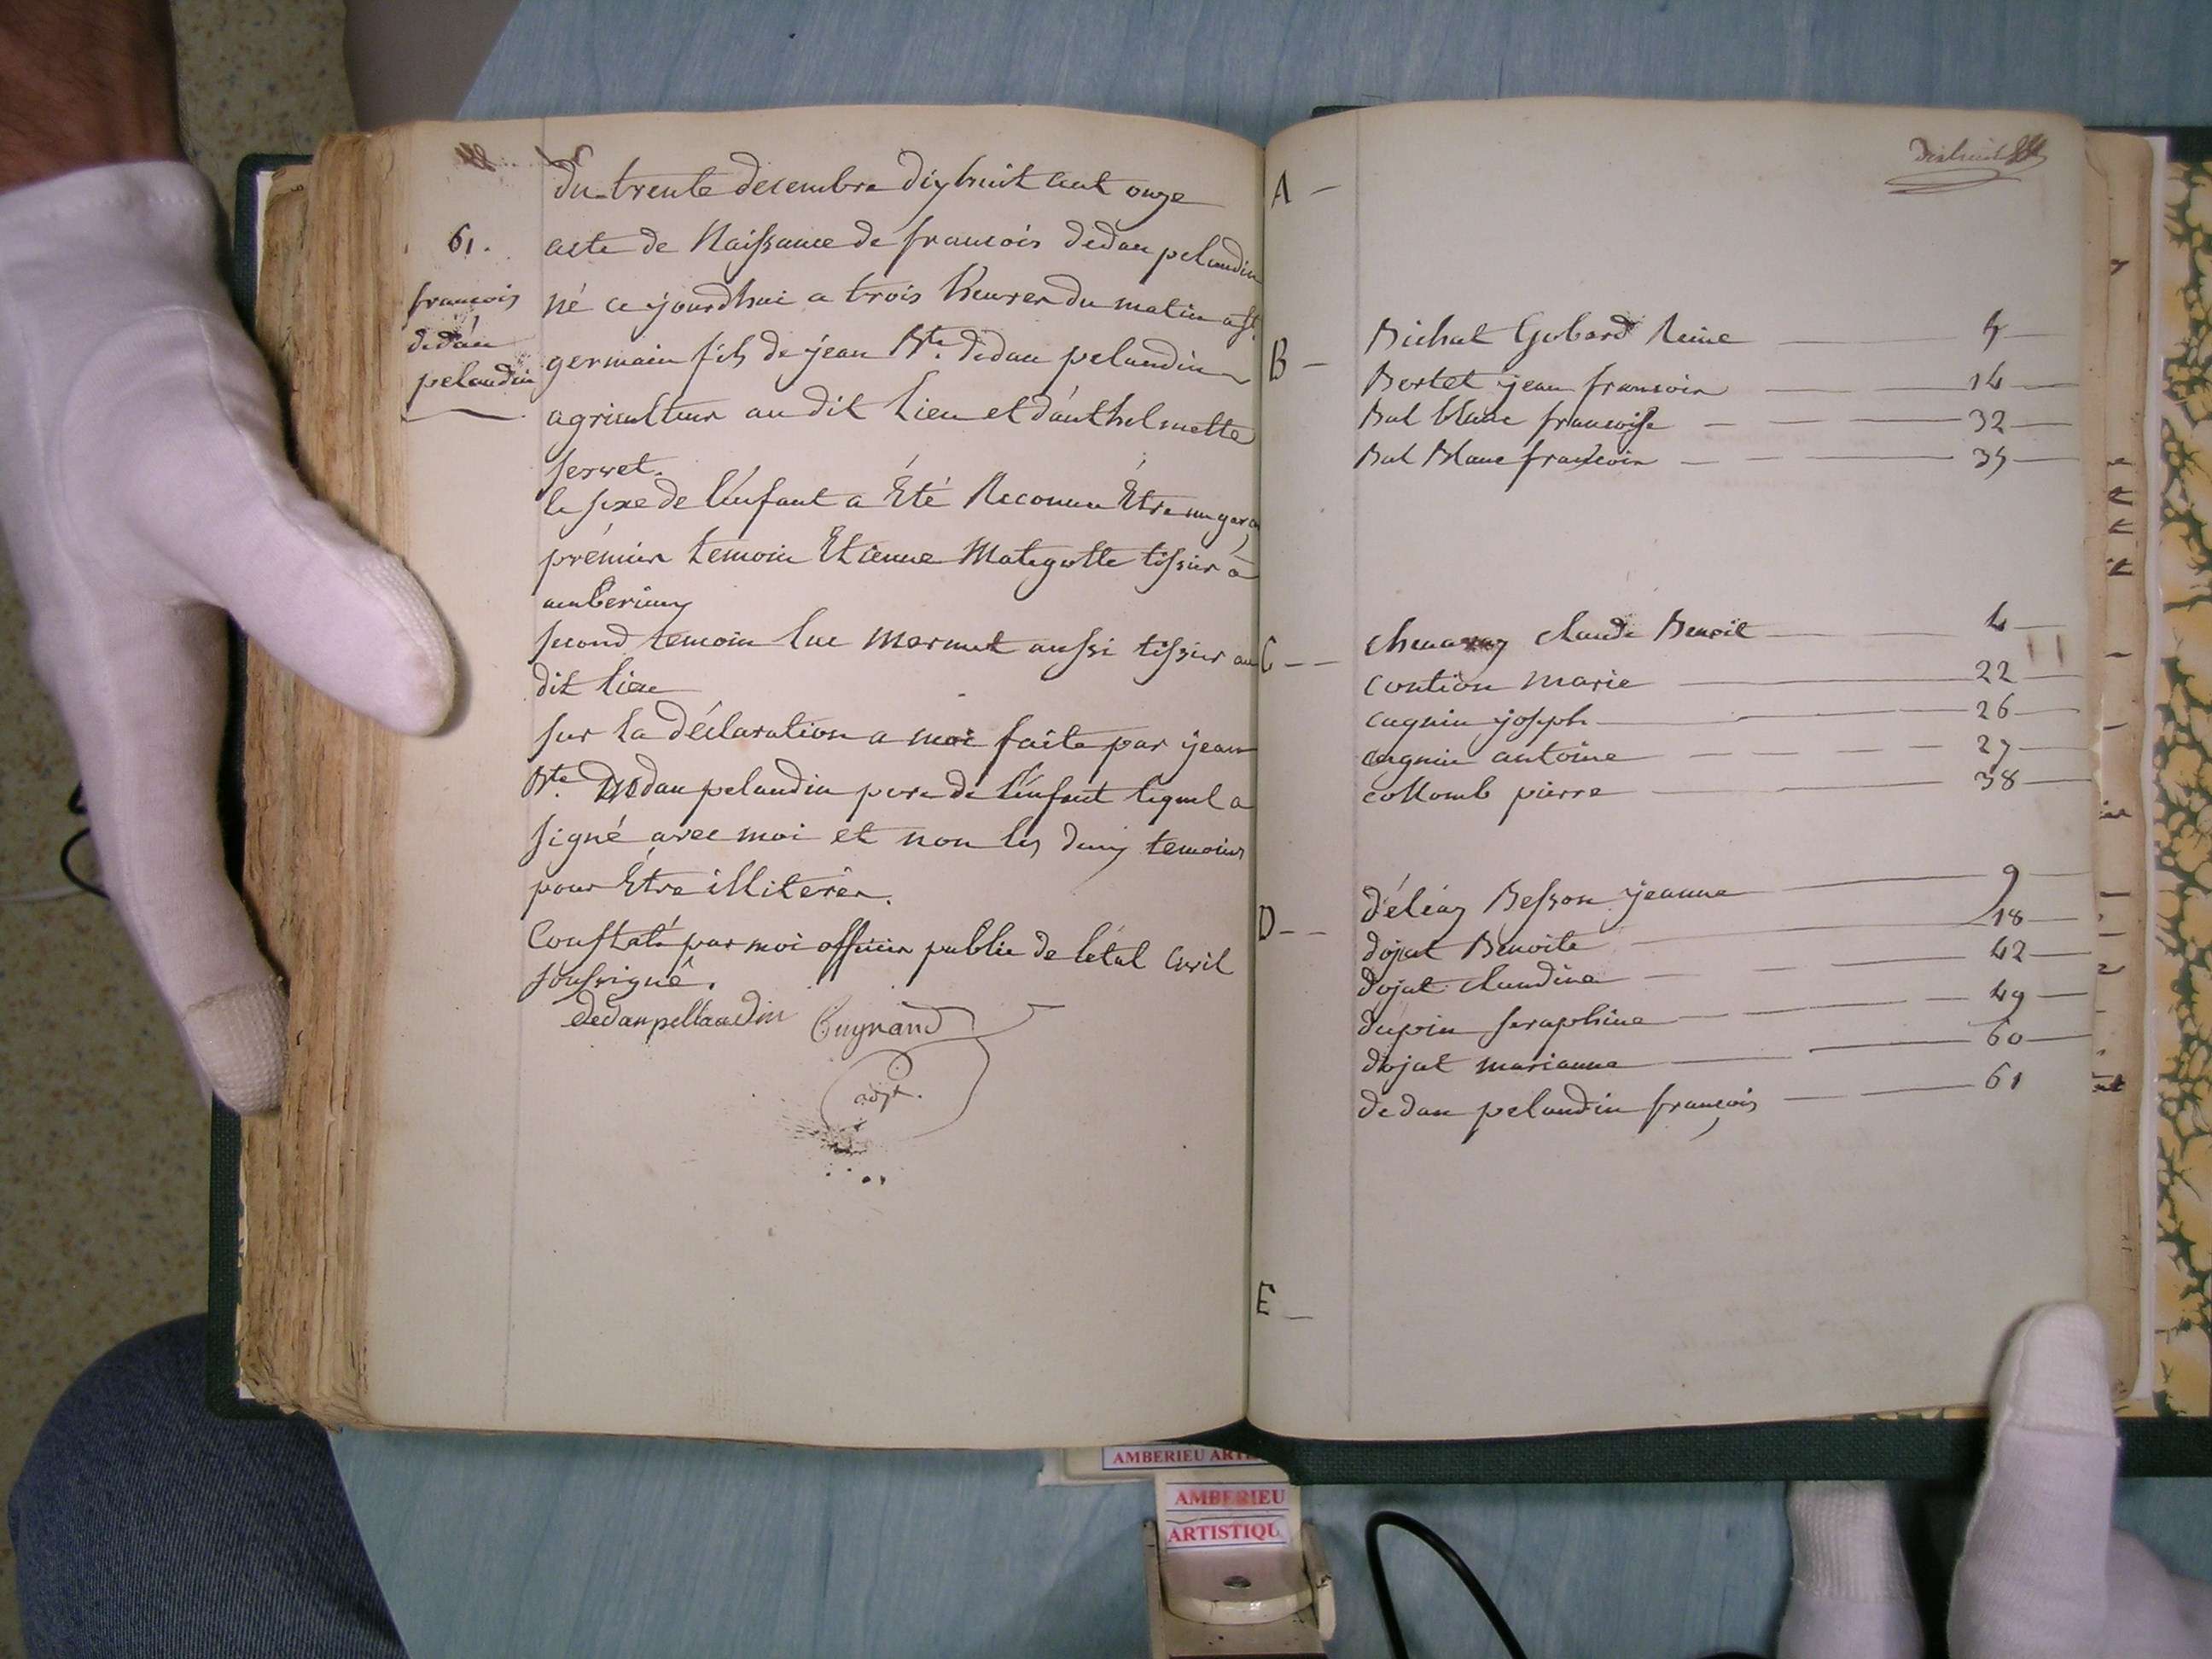 du trente decembre dix huit cent onze
61.
acte de Naissance de francois dédan pelandin
francois
dedan
pelaudin
né ce jourdhui a trois heures du matin a st.
germain fils de jean Bte. dedan pelandin
agriculteur au dit lieu et d'anthelmette
servet.
le sexe de l'enfant a Été Reconnu Être un garcon
prémier temoin Etienne Matigotte tissier a
amberieux
second temoin luc mermet aussi tissier au
dit lieu
sur la déclaration a moi faite par jean
Bte. Dedan pelandin pere de l'enfant lequel a
signé avec moi et non les deux temoins
pour Être illiterés.
Constaté par moi officier public de létat Civil
soussigné.
dedanpellaudin
Cuynand
adjt.
A -
B -
Bichat Gobard Reine 5
Bertet jean francois 14
But blanc francoise 32
But Blanc francois 35
C - -
claude Benoit 4
Contion marie 22
cagnin joseph 26
cagnin antoine 27
collomb pierre 38
D - -
déliaz Besson jeanne 9
dojat Benoite 18
dojat claudine 42
dupin seraphine 49
dojat marianne 60
dedan pelandin francois 61
E -
AMBERIEU ART
AMBERIEU
ARTISTIQU